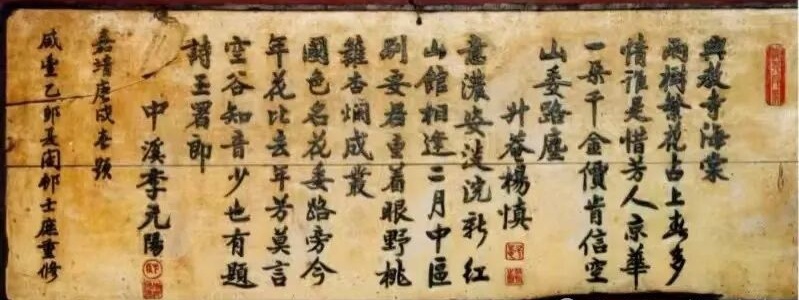 興教寺海棠
兩樹繁花占上春多
情誰是惜芳人京華
一朶千金價肯信空
山委路塵
升菴楊慎
意濃姿淡浣新紅
山館相逢二月中區
別要君重着眼野桃
雜杏爛成叢
國色名花委路旁今
年花比去年芳莫言
空谷知音少也有題
詩玉署郎
中溪李元陽
嘉靖庚戌春題
咸豐乙卯夏闔邨士庶重修